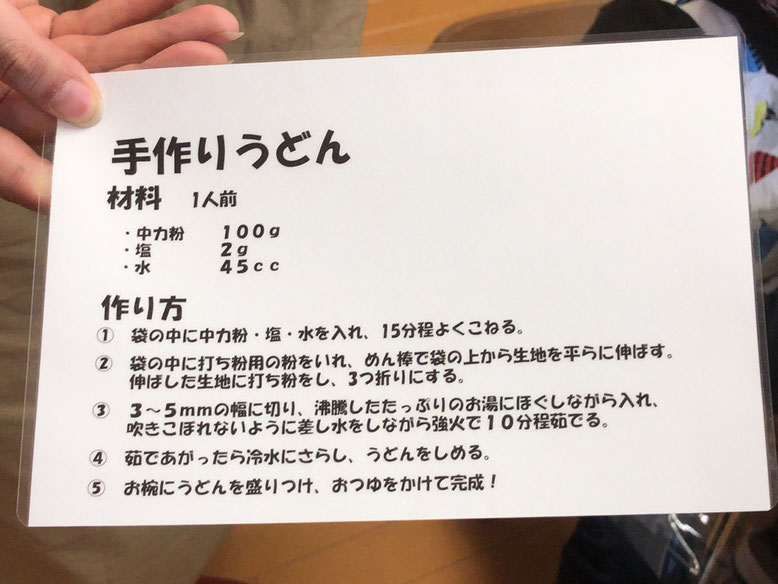 手作りうどん
材料 1人前
・中力粉 100g
・塩 2g
・水 45cc
作り方
① 袋の中に中力粉・塩・水を入れ、15分程よくこねる。
② 袋の中に打ち粉用の粉をいれ、めん棒で袋の上から生地を平らに伸ばす。
伸ばした生地に打ち粉をし、3つ折りにする。
③ 3～5mmの幅に切り、沸騰したたっぷりのお湯にほぐしながら入れ、
吹きこぼれないように差し水をしながら強火で10分程茹でる。
④ 茹であがったら冷水にさらし、うどんをしめる。
⑤ お椀にうどんを盛りつけ、おつゆをかけて完成！